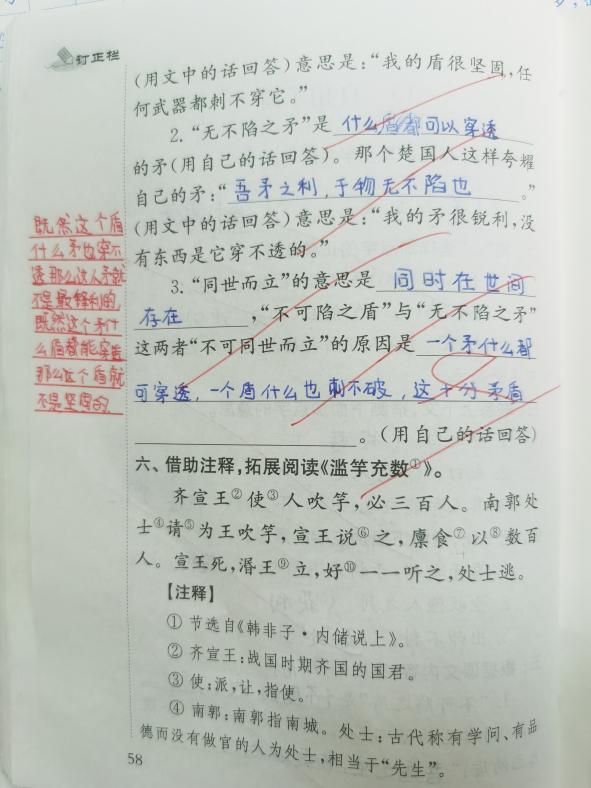 订正栏
(用文中的话回答)意思是:“我的盾很坚固,任
何武器都刺不穿它。”
2.“无不陷之矛”是 什么盾都可以穿透
的矛(用自己的话回答)。那个楚国人这样夸耀
自己的矛:“吾矛之利,于物无不陷也。”
(用文中的话回答)意思是:“我的矛很锐利,没
有东西是它穿不透的。”
3.“同世而立”的意思是 同时在世间
存在,“不可陷之盾”与“无不陷之矛”
这两者“不可同世而立”的原因是 一个矛什么都
可穿透,一个盾什么也刺不破,这十分矛盾
。(用自己的话回答)
既然这个盾
什么矛也穿不
透那么这人矛就
不是最锋利的,
既然这个矛什
么盾都能穿透
那么这个盾就
不是坚固的
六、借助注释,拓展阅读《滥竽充数①》。
齐宣王②使③人吹竽,必三百人。南郭处
士④请⑤为王吹竽,宣王说⑥之,廪食⑦以⑧数百
人。宣王死,湣王⑨立,好⑩一一听之,处士逃。
【注释】
① 节选自《韩非子·内储说上》。
② 齐宣王:战国时期齐国的国君。
③ 使:派,让,指使。
④ 南郭:南郭指南城。处士:古代称有学问、有品
德而没有做官的人为处士,相当于“先生”。
58